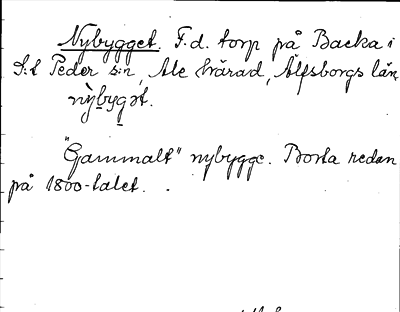 Nybygget. F.d. torp på Backa i
S:t Peder s:n, Ale härad, Älfsborgs län,
nỳbygət.
"Gammalt" nybygge. Borta redan
på 1800-talet.